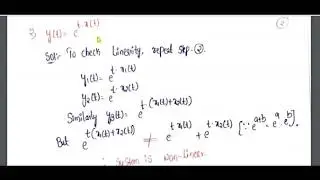 3) y(t) = e^{t·x(t)}
Sol:- To check Linearity, repeat step-②.
y₁(t) = e^{t·x₁(t)}
y₂(t) = e^{t·x₂(t)}
Similarly y₃(t) = e^{t·(x₁(t)+x₂(t))}
But e^{t(x₁(t)+x₂(t))} ≠ e^{t x₁(t)} + e^{t·x₂(t)} [∵ e^{a+b} = e^a·e^b].
∴ System is Non-Linear